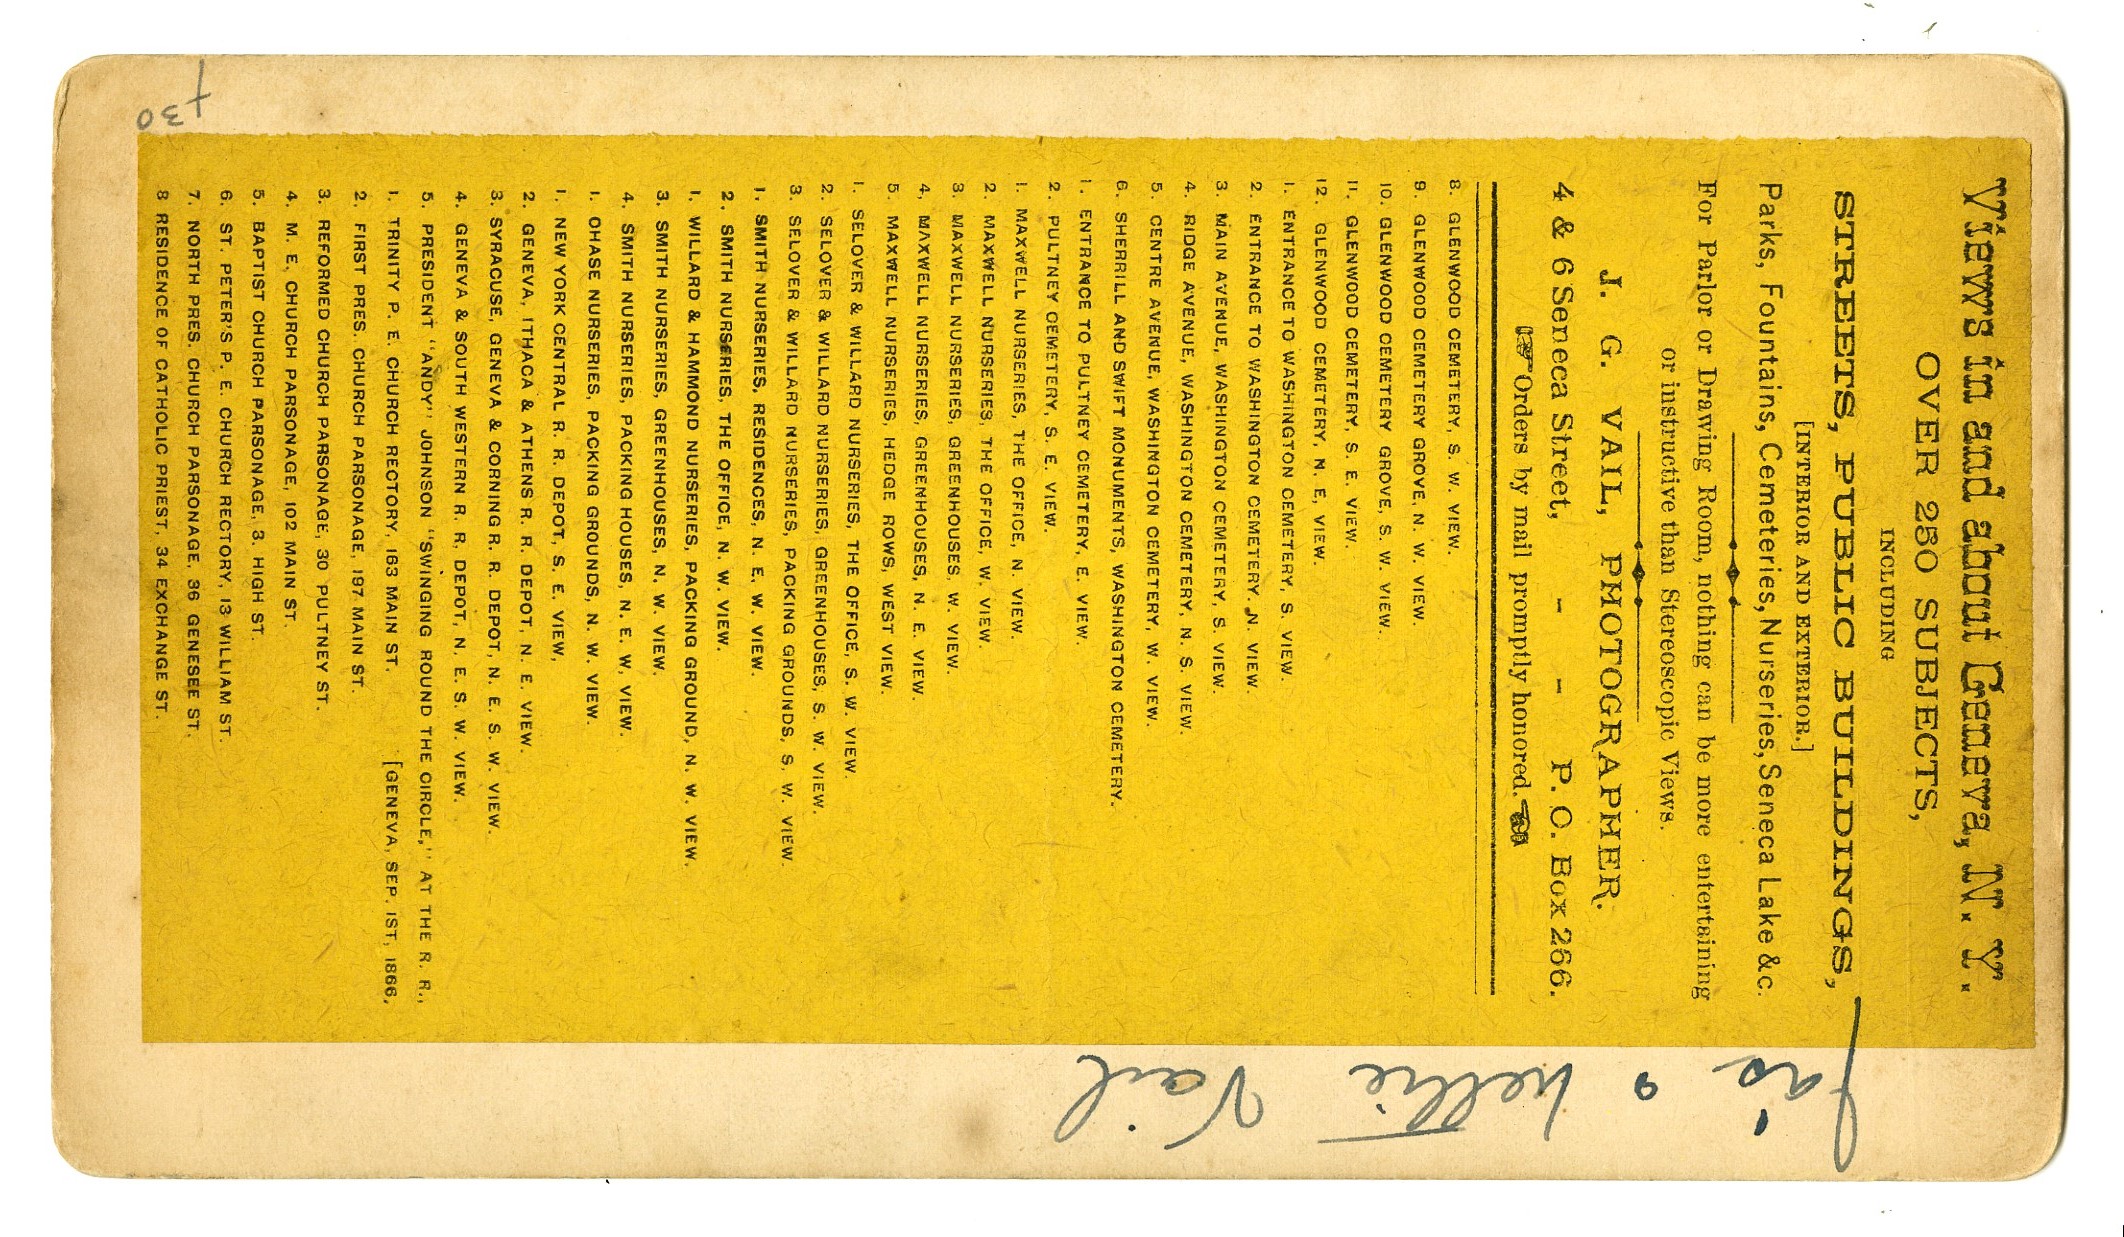 Views in and about Geneva, N. Y.
OVER 250 SUBJECTS,
INCLUDING
STREETS, PUBLIC BUILDINGS,
[INTERIOR AND EXTERIOR.]
Parks, Fountains, Cemeteries, Nurseries, Seneca Lake &c.
For Parlor or Drawing Room, nothing can be more entertaining
or instructive than Stereoscopic Views.
J. G. VAIL, PHOTOGRAPHER.
4 & 6 Seneca Street, - - P. O. Box 266.
Orders by mail promptly honored.
8. GLENWOOD CEMETERY, S. W. VIEW.
9. GLENWOOD CEMETERY GROVE, N. W. VIEW.
10. GLENWOOD CEMETERY GROVE, S. W. VIEW.
11. GLENWOOD CEMETERY, S. E. VIEW.
12. GLENWOOD CEMETERY, N. E, VIEW.
1. ENTRANCE TO WASHINGTON CEMETERY, S. VIEW.
2. ENTRANCE TO WASHINGTON CEMETERY, N. VIEW.
3. MAIN AVENUE, WASHINGTON CEMETERY, S. VIEW.
4. RIDGE AVENUE, WASHINGTON CEMETERY, N. S. VIEW.
5. CENTRE AVENUE, WASHINGTON CEMETERY, W. VIEW.
6. SHERRILL AND SWIFT MONUMENTS, WASHINGTON CEMETERY.
1. ENTRANCE TO PULTNEY CEMETERY, E. VIEW.
2. PULTNEY CEMETERY, S. E. VIEW.
1. MAXWELL NURSERIES, THE OFFICE, N. VIEW.
2. MAXWELL NURSERIES, THE OFFICE, W. VIEW.
3. MAXWELL NURSERIES, GREENHOUSES, W. VIEW.
4. MAXWELL NURSERIES, GREENHOUSES, N. E. VIEW.
5. MAXWELL NURSERIES, HEDGE ROWS, WEST VIEW.
1. SELOVER & WILLARD NURSERIES, THE OFFICE, S. W. VIEW.
2. SELOVER & WILLARD NURSERIES, GREENHOUSES, S. W. VIEW.
3. SELOVER & WILLARD NURSERIES, PACKING GROUNDS, S. W. VIEW.
1. SMITH NURSERIES, RESIDENCES, N. E. W. VIEW.
2. SMITH NURSERIES, THE OFFICE, N. W. VIEW.
1. WILLARD & HAMMOND NURSERIES, PACKING GROUND, N. W. VIEW.
3. SMITH NURSERIES, GREENHOUSES, N. W. VIEW.
4. SMITH NURSERIES, PACKING HOUSES, N. E. W, VIEW.
1. CHASE NURSERIES, PACKING GROUNDS, N. W. VIEW.
1. NEW YORK CENTRAL R. R. DEPOT, S. E. VIEW,
2. GENEVA, ITHACA & ATHENS R. R. DEPOT, N. E. VIEW.
3. SYRACUSE, GENEVA & CORNING R. R. DEPOT, N. E. S. W. VIEW.
4. GENEVA & SOUTH WESTERN R. R. DEPOT, N. E. S. W. VIEW.
5. PRESIDENT "ANDY" JOHNSON "SWINGING ROUND THE CIRCLE," AT THE R. R.,
1. TRINITY P. E. CHURCH RECTORY, 163 MAIN ST. [GENEVA, SEP. 1ST, 1866,
2. FIRST PRES. CHURCH PARSONAGE, 197 MAIN ST.
3. REFORMED CHURCH PARSONAGE, 30 PULTNEY ST.
4. M. E, CHURCH PARSONAGE, 102 MAIN ST.
5. BAPTIST CHURCH PARSONAGE, 3. HIGH ST.
6. ST. PETER'S P. E. CHURCH RECTORY, 13 WILLIAM ST.
7. NORTH PRES, CHURCH PARSONAGE, 36 GENESEE ST.
8 RESIDENCE OF CATHOLIC PRIEST, 34 EXCHANGE ST.
Nellie Vail
30